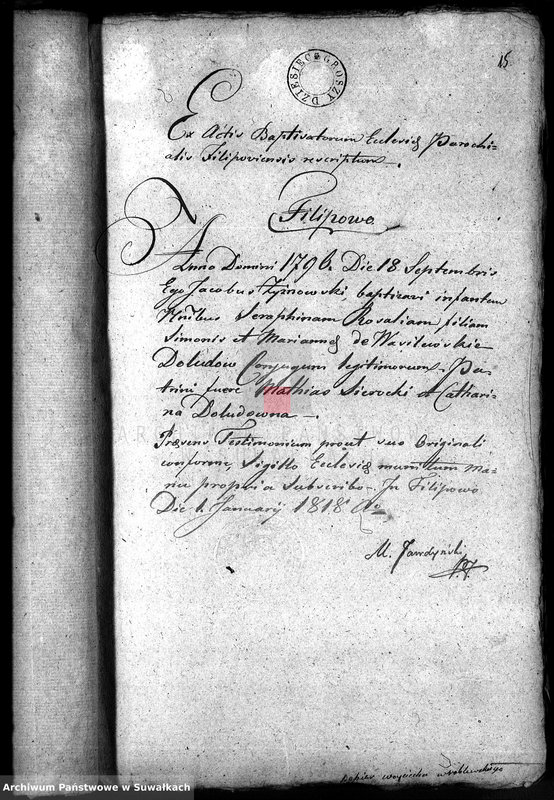 15
DZIESIĘC GROSZY
Ex Actis Baptisatorum Ecclesię Parochi-
alis Filipoviensis rescriptum.
Filipowo
Anno Domini 1796. Die 18 Septembris
Ego Jacobus Zyznowski, baptizavi infantem
Seraphinam Rosaliam, filiam
Simonis et Mariannę de Wasilewskie
Doludow Conjugum legitimorum. Pa-
trini fuere Mathias Sierocki et Cathari-
na Doludowna.
Pręsens Testimonium prout suo Originali
conforme, Sigillo Ecclesię munitum Ma-
nu propria subscribo. In Filipowo
Die 1 January 1818 Ao
M. Jawdyński
Archiwum Państwowe w Suwałkach